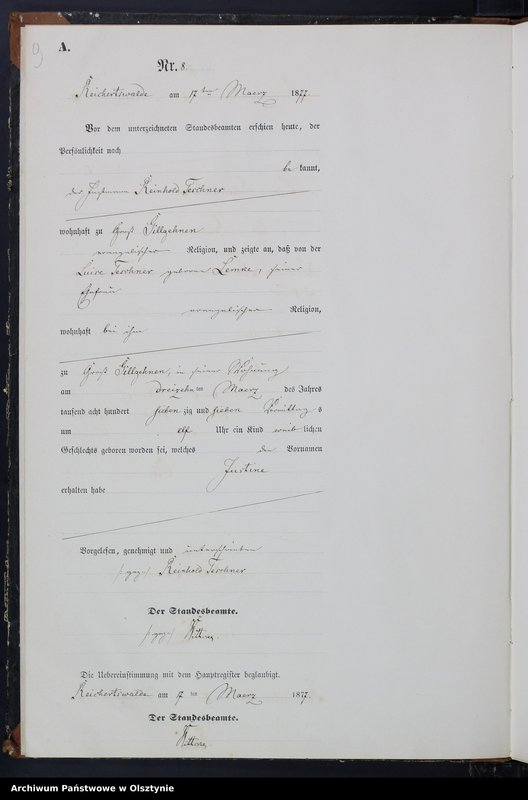 9
A.
Nr. 8.
Reichertswalde am 17ten Maerz 1877.
Vor dem unterzeichneten Standesbeamten erschien heute, der
Persönlichkeit nach
be kannt,
der Reinhold Terchner
wohnhaft zu Groß Gillgehnen
evangelischer Religion, und zeigte an, daß von der
Luise Terchner geborenen Lemke, seiner
Ehefrau
evangelischer Religion,
wohnhaft bei ihm
zu Groß Gillgehnen, in seiner Wohnung
am dreizehnten Maerz des Jahres
tausend acht hundert sieben zig und sieben Vormittag s
um elf Uhr ein Kind weib lichen
Geschlechts geboren worden sei, welches den Vornamen
Justine
erhalten habe
Vorgelesen, genehmigt und unterschrieben
Reinhold Terchner
Der Standesbeamte.
Die Uebereinstimmung mit dem Hauptregister beglaubigt.
Reichertswalde am 17ten Maerz 1877.
Der Standesbeamte.
Archiwum Państwowe w Olsztynie